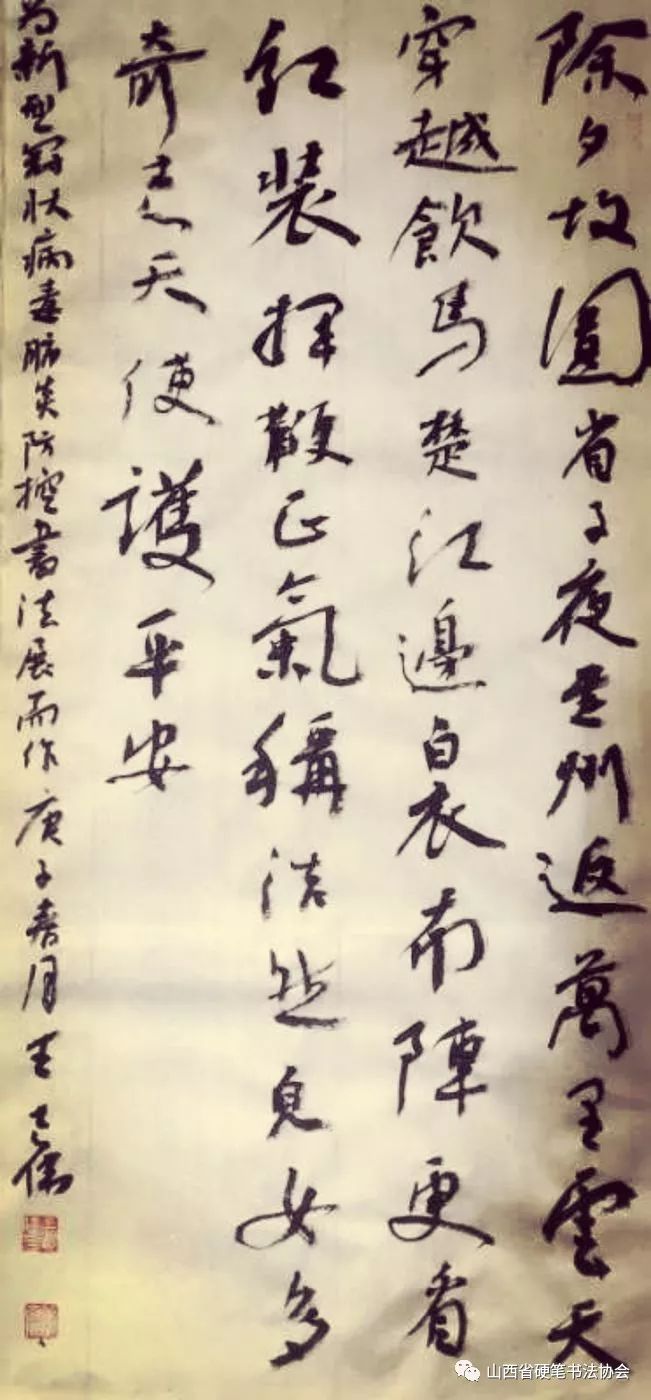 除夕故園省子夜州返萬里雲天
穿越飲馬楚江邊白衣南陣更看
紅裝揮鞭正氣稱浩然兒女多
奇志天使護平安
为新型冠状病毒肺炎防控書法展而作 庚子春月 王儒
山西省硬笔书法协会